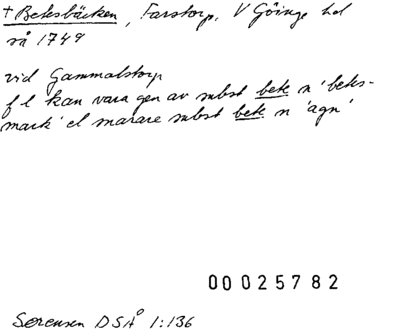 † Beksbäcken, Farstorp, V Göinge hd
så 1749
vid Gammalstorp
f l kan vara gen av subst bete n 'betes-
mark' el snarare subst bete n 'agn'
00025782
Sørensen DSÅ 1:136